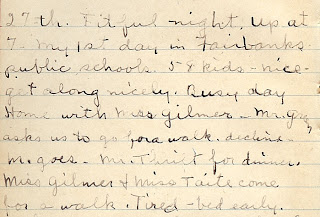 27th. Fitful night. Up at
7- My 1st day in Fairbanks
public schools. 58 kids - nice-
get along nicely. Busy day
Home with Miss Gilmer -
asks us to go for a walk. decline-
M. goes - Mr. Thrift for dinner.
Miss Gilmer & Miss Taite come
for a walk. Tired - bed early.